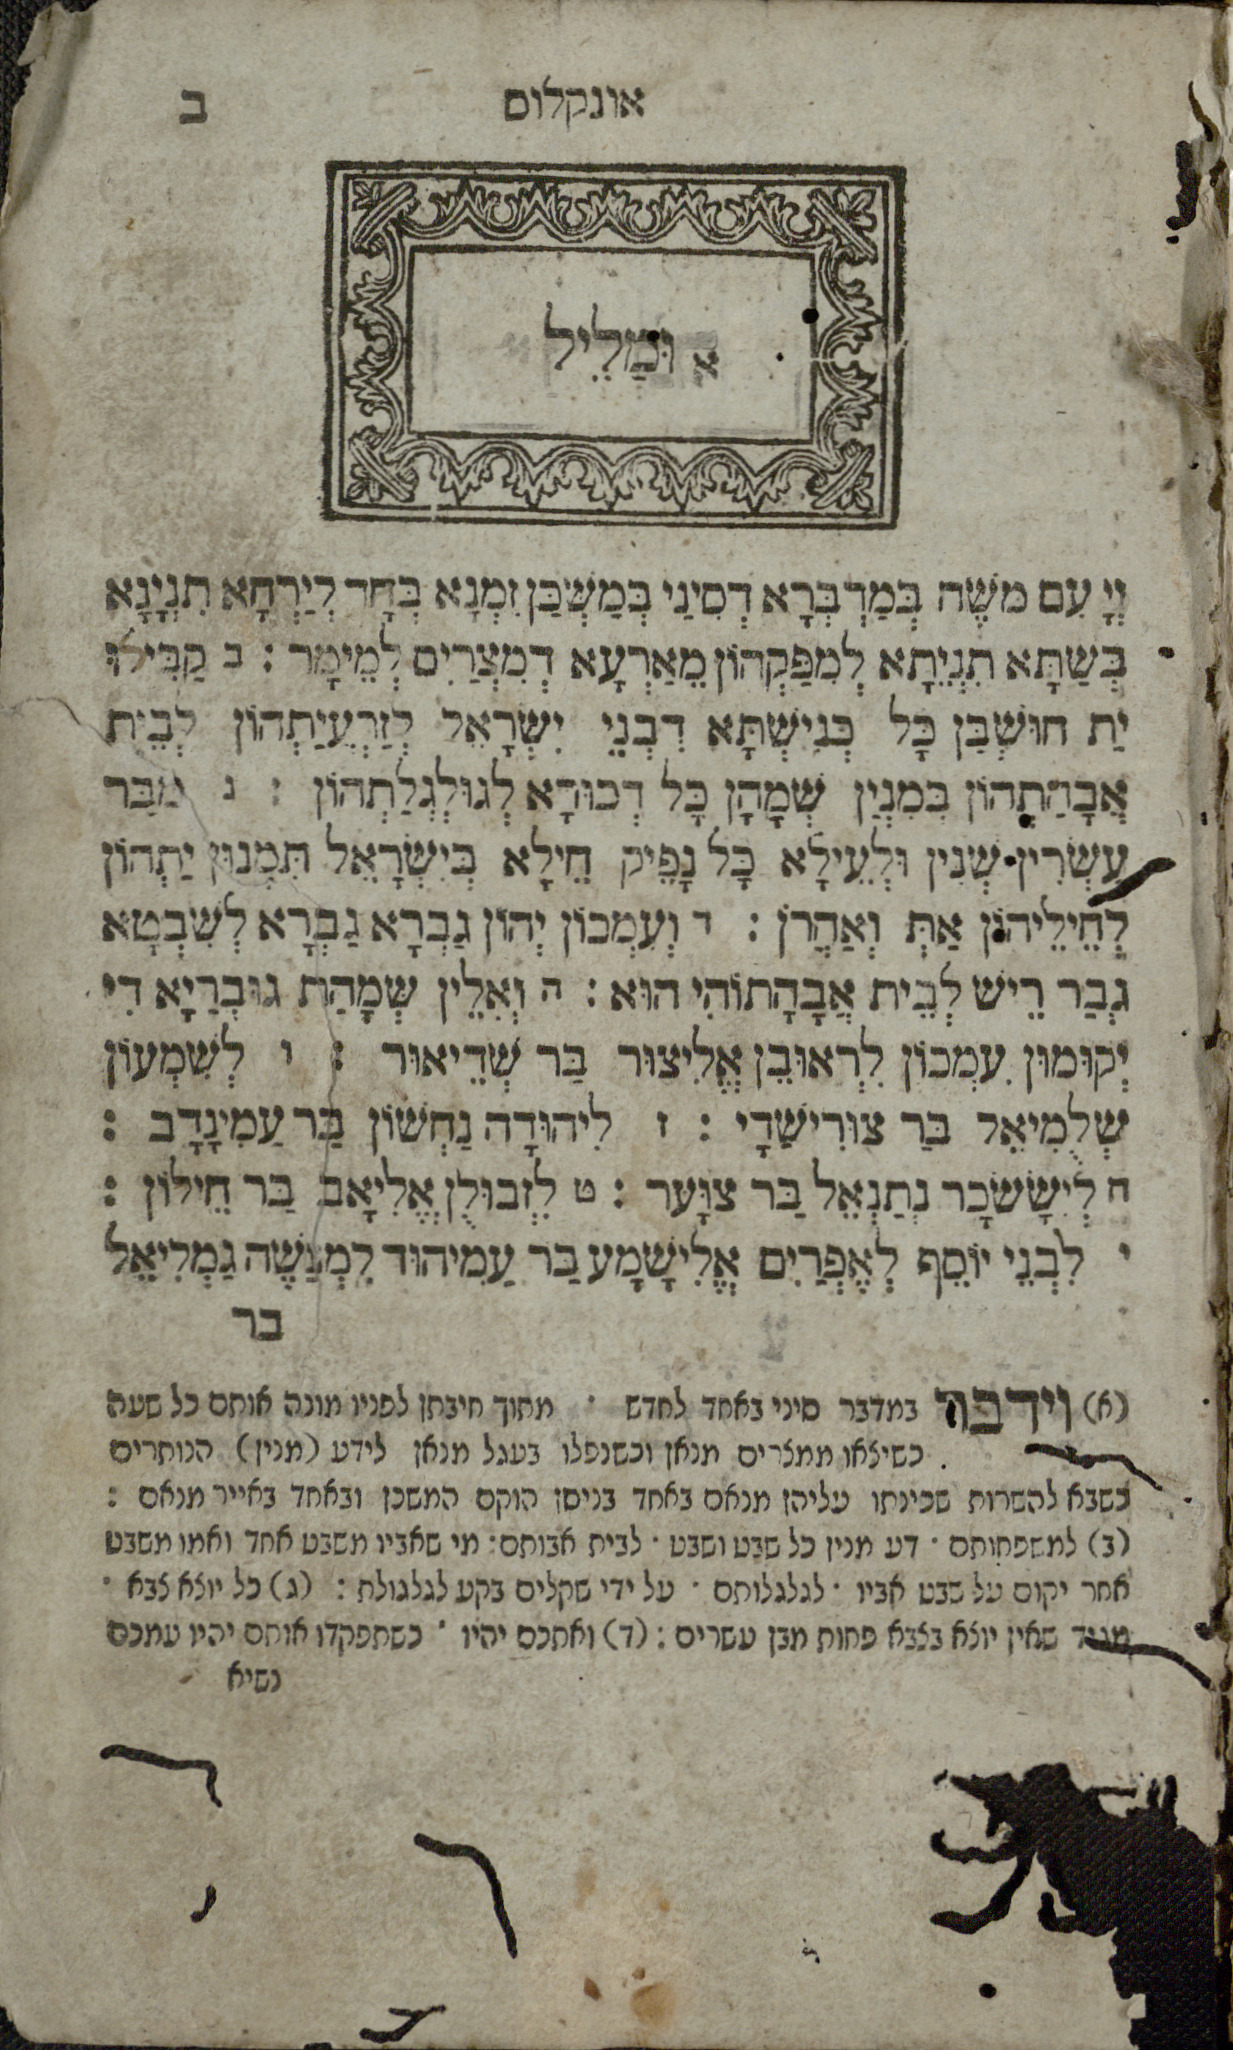 אונקלוס ב
א וּמַלֵיל
יְיָ עִם מֹשֶׁה בְּמַדְבְּרָא דְסִינַי בְּמַשְׁכַּן זִמְנָא בְּחַד לְיַרְחָא תִנְיָנָא
בְּשַׁתָּא תִנְיֵתָא לְמִפַּקְהוֹן מֵאַרְעָא דְמִצְרַיִם לְמֵימָר : ב קַבִּילוּ
יַת חוּשְׁבַּן כָּל כְּנִישְׁתָּא דִבְנֵי יִשְׂרָאֵל לְזַרְעֲיַתְהוֹן לְבֵית
אֲבָהַתְהוֹן בְּמִנְיַן שְׁמָהָן כָּל דְכוּרָא לְגוּלְגְלַתְהוֹן : ג מִבַּר
עַשְׂרִין שְׁנִין וּלְעֵילָא כָּל נָפֵיק חֵילָא בְּיִשְׂרָאֵל תִּמְנוּן יַתְהוֹן
לְחֵילֵיהוֹן אַתְּ וְאַהֲרֹן : ד וְעִמְּכוֹן יְהוֹן גַבְרָא גַבְרָא לְשִׁבְטָא
גְבַר רֵישׁ לְבֵית אֲבָהָתוֹהִי הוּא : ה וְאִלֵין שְׁמָהַת גוּבְרַיָא דִי
יְקוּמוּן עִמְכוֹן לִרְאוּבֵן אֱלִיצוּר בַּר שְׁדֵיאוּר : ו לְשִׁמְעוֹן
שְׁלֻמִיאֵל בַּר צוּרִישַׁדָי : ז לִיהוּדָה נַחְשׁוֹן בַּר עַמִינָדָב :
ח לְיִשָׂשׂכָר נְתַנְאֵל בַּר צוּעָר : ט לִזְבוּלֻן אֱלִיאָב בַּר חֵילוֹן :
י לִבְנֵי יוֹסֵף לְאֶפְרַיִם אֱלִישָׁמָע בַּר עַמִיהוּד לִמְנַשֶׁה גַמְלִיאֵל
בר
(א) וידבר במדבר סיני באחד לחדש · מתוך חיבתן לפניו מונה אותם כל שעה
כשיצאו ממצרים מנאן וכשנפלו בעגל מנאן לידע (מנין) הנותרים
כשבא להשרות שכינתו עליהן מנאם באחד בניסן הוקם המשכן ובאחד באייר מנאם :
(ב) למשפחותם · דע מנין כל שבט ושבט · לבית אבותם : מי שאביו משבט אחד ואמו משבט
אחר יקום על שבט אביו · לגלגלותם · על ידי שקלים בקע לגלגולת : (ג) כל יוצא צבא ·
מגיד שאין יוצא בצבא פחות מבן עשרים : (ד) ואתכם יהיו · כשתפקדו אותם יהיו עמכם
נשיא